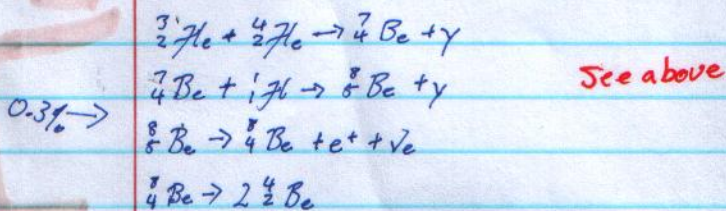 ³₂He + ⁴₂He → ⁷₄Be + γ
⁷₄Be + ¹₁H → ⁸₅Be + γ
See above
0.3% →
⁸₅Be → ⁸₄Be + e⁺ + νe
⁸₄Be → 2 ⁴₂Be